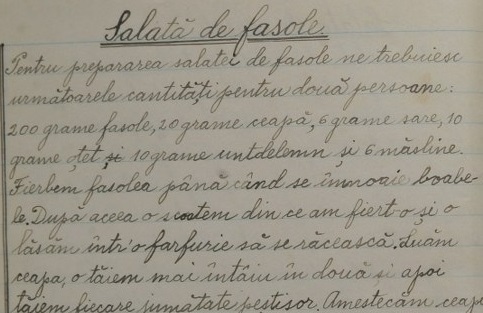 Salată de fasole.
Pentru prepararea salatei de fasole ne trebuiesc
următoarele cantități pentru două persoane:
200 grame fasole, 20 grame ceapă, 6 grame sare, 10
grame oțet, și 10 grame untdelemn și 6 măsline.
Fierbem fasolea până când se înmoaie boabe-
le. După aceea o scoatem din ce am fiert-o și o
lăsăm într'o farfurie să se răcească. Luăm
ceapa, o tăiem mai întâiu în două și apoi
tăiem fiecare jumătate peștișor. Amestecăm ceap